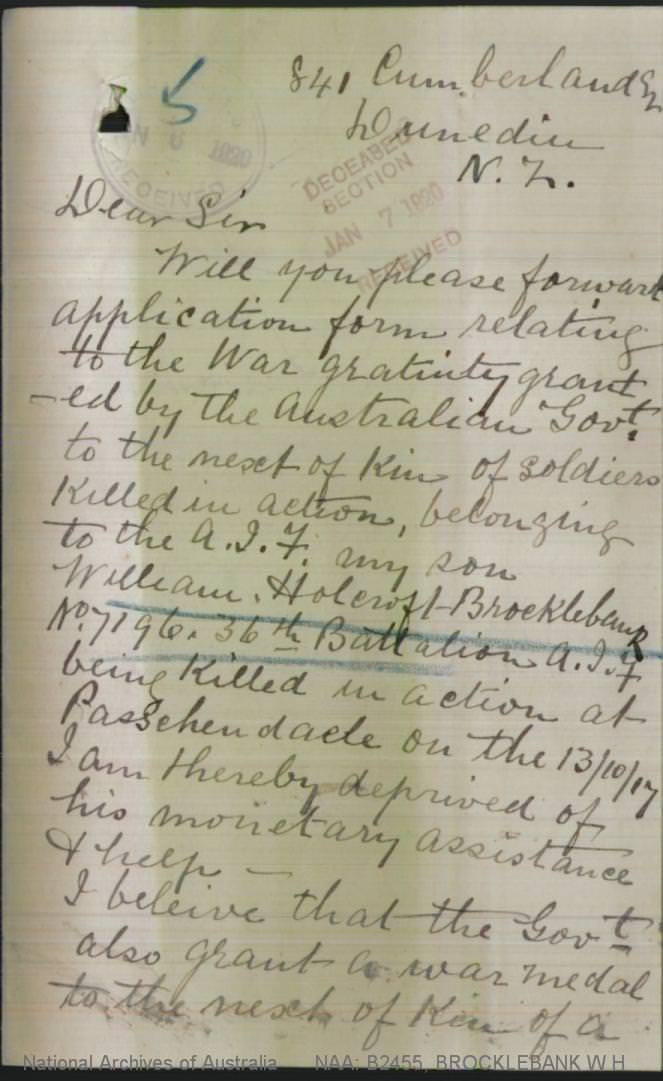 5
841 Cumberland St
Dunedin
N.Z.
JAN 6 1920
RECEIVED
DECEASED
SECTION
JAN 7 1920
RECEIVED
Dear Sir
Will you please forward
application form relating
to the War gratuity grant
-ed by the Australian Govt.
to the next of Kin of soldiers
Killed in action, belonging
to the A.I.F. my son
William. Holcroft-Brocklebank
No. 7196. 36th Battalion A.I.F
being Killed in action at
Passchendaele on the 13/10/17
I am thereby deprived of
his monetary assistance
& help —
I beleive that the Govt
also grant a war medal
to the next of Kin of a
National Archives of Australia NAA: B2455, BROCKLEBANK W H